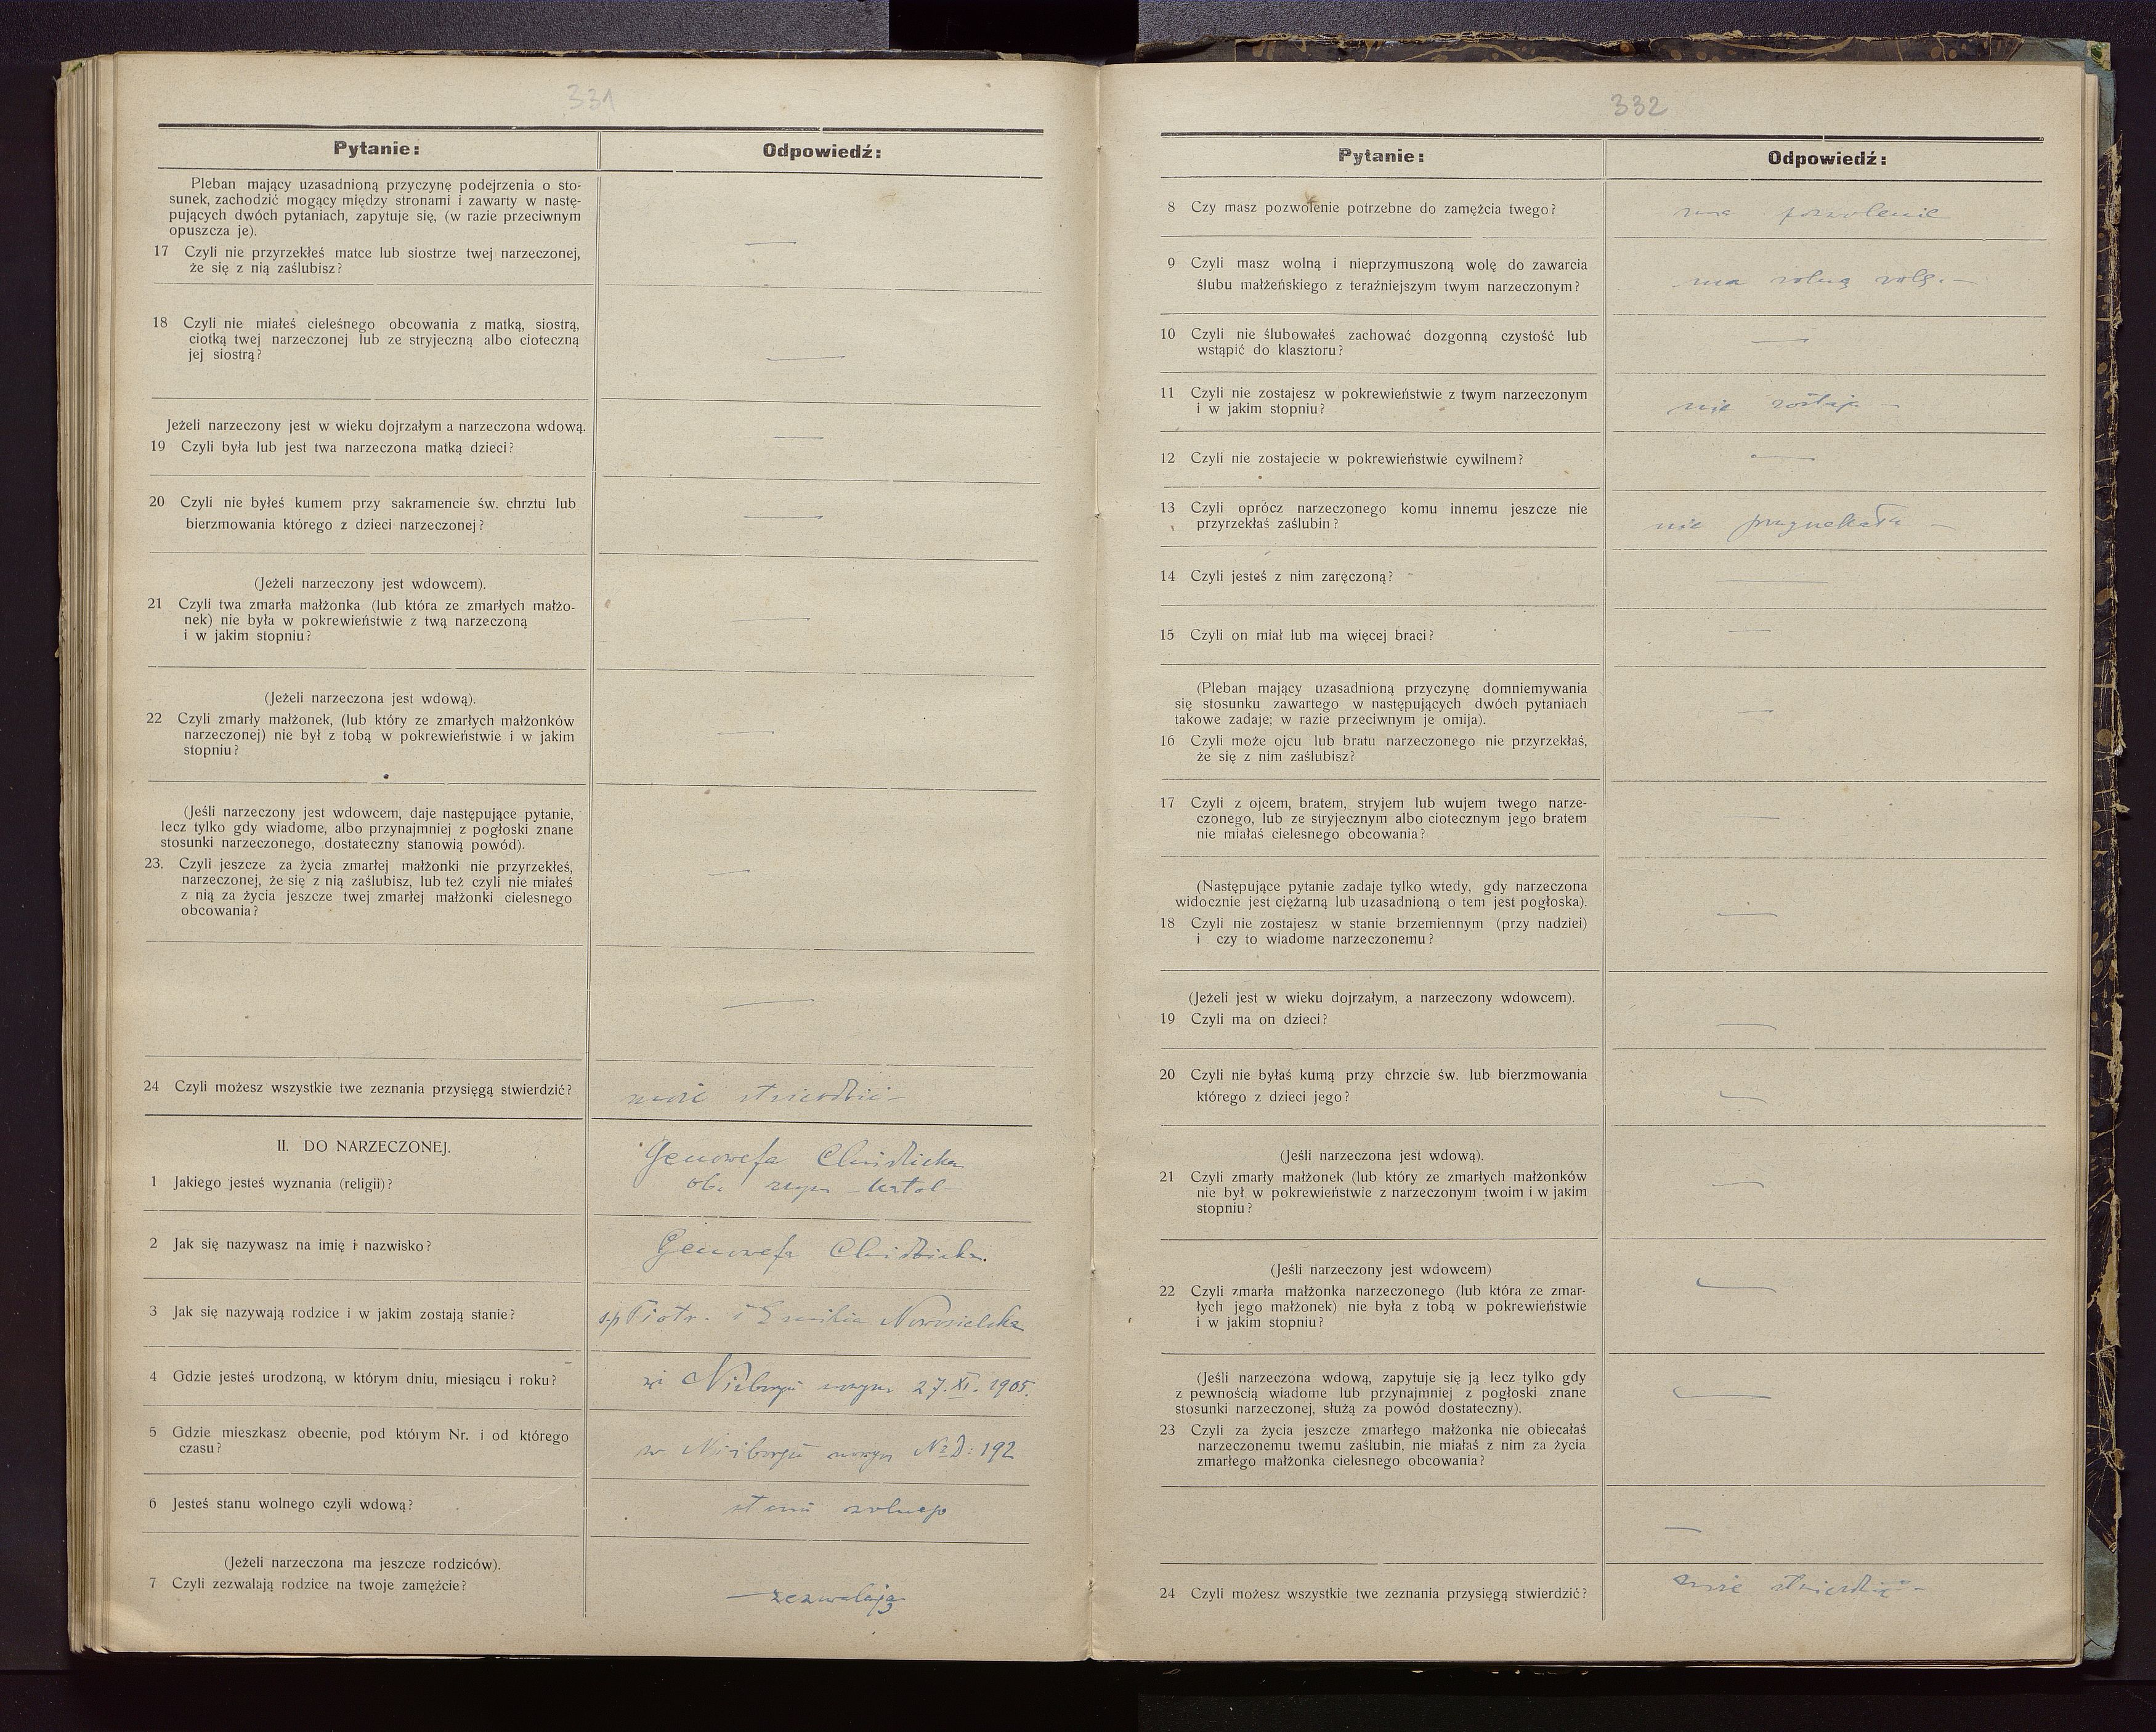 331
Pytanie:
Odpowiedź:
Pleban mający uzasadnioną przyczynę podejrzenia o sto-
sunek, zachodzić mogący między stronami i zawarty w nastę-
pujących dwóch pytaniach, zapytuje się, (w razie przeciwnym
opuszcza je).
17 Czyli nie przyrzekłeś matce lub siostrze twej narzeczonej,
że się z nią zaślubisz?
—
18 Czyli nie miałeś cieleśnego obcowania z matką, siostrą,
ciotką twej narzeczonej lub ze stryjeczną albo cioteczną
jej siostrą?
—
Jeżeli narzeczony jest w wieku dojrzałym a narzeczona wdową.
19 Czyli była lub jest twa narzeczona matką dzieci?
—
20 Czyli nie byłeś kumem przy sakramencie św. chrztu lub
bierzmowania którego z dzieci narzeczonej?
—
(Jeżeli narzeczony jest wdowcem).
21 Czyli twa zmarła małżonka (lub która ze zmarłych małżo-
nek) nie była w pokrewieństwie z twą narzeczoną
i w jakim stopniu?
—
(Jeżeli narzeczona jest wdową).
22 Czyli zmarły małżonek, (lub który ze zmarłych małżonków
narzeczonej) nie był z tobą w pokrewieństwie i w jakim
stopniu?
—
(Jeśli narzeczony jest wdowcem, daje następujące pytanie,
lecz tylko gdy wiadome, albo przynajmniej z pogłoski znane
stosunki narzeczonego, dostateczny stanowią powód).
23. Czyli jeszcze za życia zmarłej małżonki nie przyrzekłeś,
narzeczonej, że się z nią zaślubisz, lub też czyli nie miałeś
z nią za życia jeszcze twej zmarłej małżonki cielesnego
obcowania?
—
—
24 Czyli możesz wszystkie twe zeznania przysięgą stwierdzić?
może stwierdzić —
II. DO NARZECZONEJ.
Genowefa
1 Jakiego jesteś wyznania (religii)?
ob. rzym - katol -
2 Jak się nazywasz na imię i nazwisko?
Genowefa
3 Jak się nazywają rodzice i w jakim zostają stanie?
śp Piotr. i Emilia Nowosielska
4 Gdzie jesteś urodzoną, w którym dniu, miesiącu i roku?
w Niżborgu nowym 27. XI. 1905.
5 Gdzie mieszkasz obecnie, pod którym Nr. i od którego
czasu?
w Niżborgu nowym No D: 192
6 Jesteś stanu wolnego czyli wdową?
stanu wolnego
(Jeżeli narzeczona ma jeszcze rodziców).
7 Czyli zezwalają rodzice na twoje zamęźcie?
— zezwalają
332
Pytanie:
Odpowiedź:
8 Czy masz pozwolenie potrzebne do zamężcia twego?
ma pozwolenie
9 Czyli masz wolną i nieprzymuszoną wolę do zawarcia
ślubu małżeńskiego z teraźniejszym twym narzeczonym?
ma wolną wolę. —
10 Czyli nie ślubowałeś zachować dozgonną czystość lub
wstąpić do klasztoru?
—
11 Czyli nie zostajesz w pokrewieństwie z twym narzeczonym
i w jakim stopniu?
nie zostaje —
12 Czyli nie zostajecie w pokrewieństwie cywilnem?
—
13 Czyli oprócz narzeczonego komu innemu jeszcze nie
przyrzekłaś zaślubin?
nie przyrzekała —
14 Czyli jesteś z nim zaręczoną?
—
15 Czyli on miał lub ma więcej braci?
—
(Pleban mający uzasadnioną przyczynę domniemywania
się stosunku zawartego w następujących dwóch pytaniach
takowe zadaje; w razie przeciwnym je omija).
16 Czyli może ojcu lub bratu narzeczonego nie przyrzekłaś,
że się z nim zaślubisz?
—
17 Czyli z ojcem, bratem, stryjem lub wujem twego narze-
czonego, lub ze stryjecznym albo ciotecznym jego bratem
nie miałaś cielesnego obcowania?
—
(Następujące pytanie zadaje tylko wtedy, gdy narzeczona
widocznie jest ciężarną lub uzasadnioną o tem jest pogłoska).
18 Czyli nie zostajesz w stanie brzemiennym (przy nadziei)
i czy to wiadome narzeczonemu?
—
(Jeżeli jest w wieku dojrzałym, a narzeczony wdowcem).
19 Czyli ma on dzieci?
—
20 Czyli nie byłaś kumą przy chrzcie św. lub bierzmowania
którego z dzieci jego?
—
(Jeśli narzeczona jest wdową).
21 Czyli zmarły małżonek (lub który ze zmarłych małżonków
nie był w pokrewieństwie z narzeczonym twoim i w jakim
stopniu?
—
(Jeśli narzeczony jest wdowcem)
22 Czyli zmarła małżonka narzeczonego (lub która ze zmar-
łych jego małżonek) nie była z tobą w pokrewieństwie
i w jakim stopniu?
—
(Jeśli narzeczona wdową, zapytuje się ją lecz tylko gdy
z pewnością wiadome lub przynajmniej z pogłoski znane
stosunki narzeczonej, służą za powód dostateczny).
23 Czyli za życia jeszcze zmarłego małżonka nie obiecałaś
narzeczonemu twemu zaślubin, nie miałaś z nim za życia
zmarłego małżonka cielesnego obcowania?
—
—
24 Czyli możesz wszystkie twe zeznania przysięgą stwierdzić?
może stwierdzić —